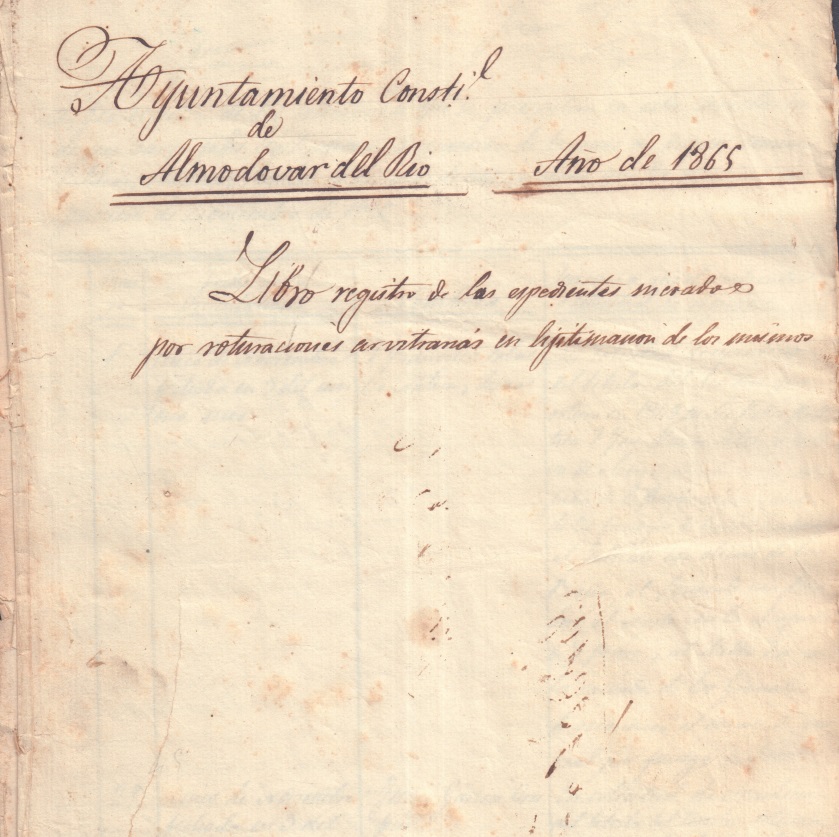 Ayuntamiento Constil.
de
Almodovar del Rio
Año de 1865
Libro registro de las espedientes incoados
por roturaciones arvitrarias en lijitimacion de los mismos